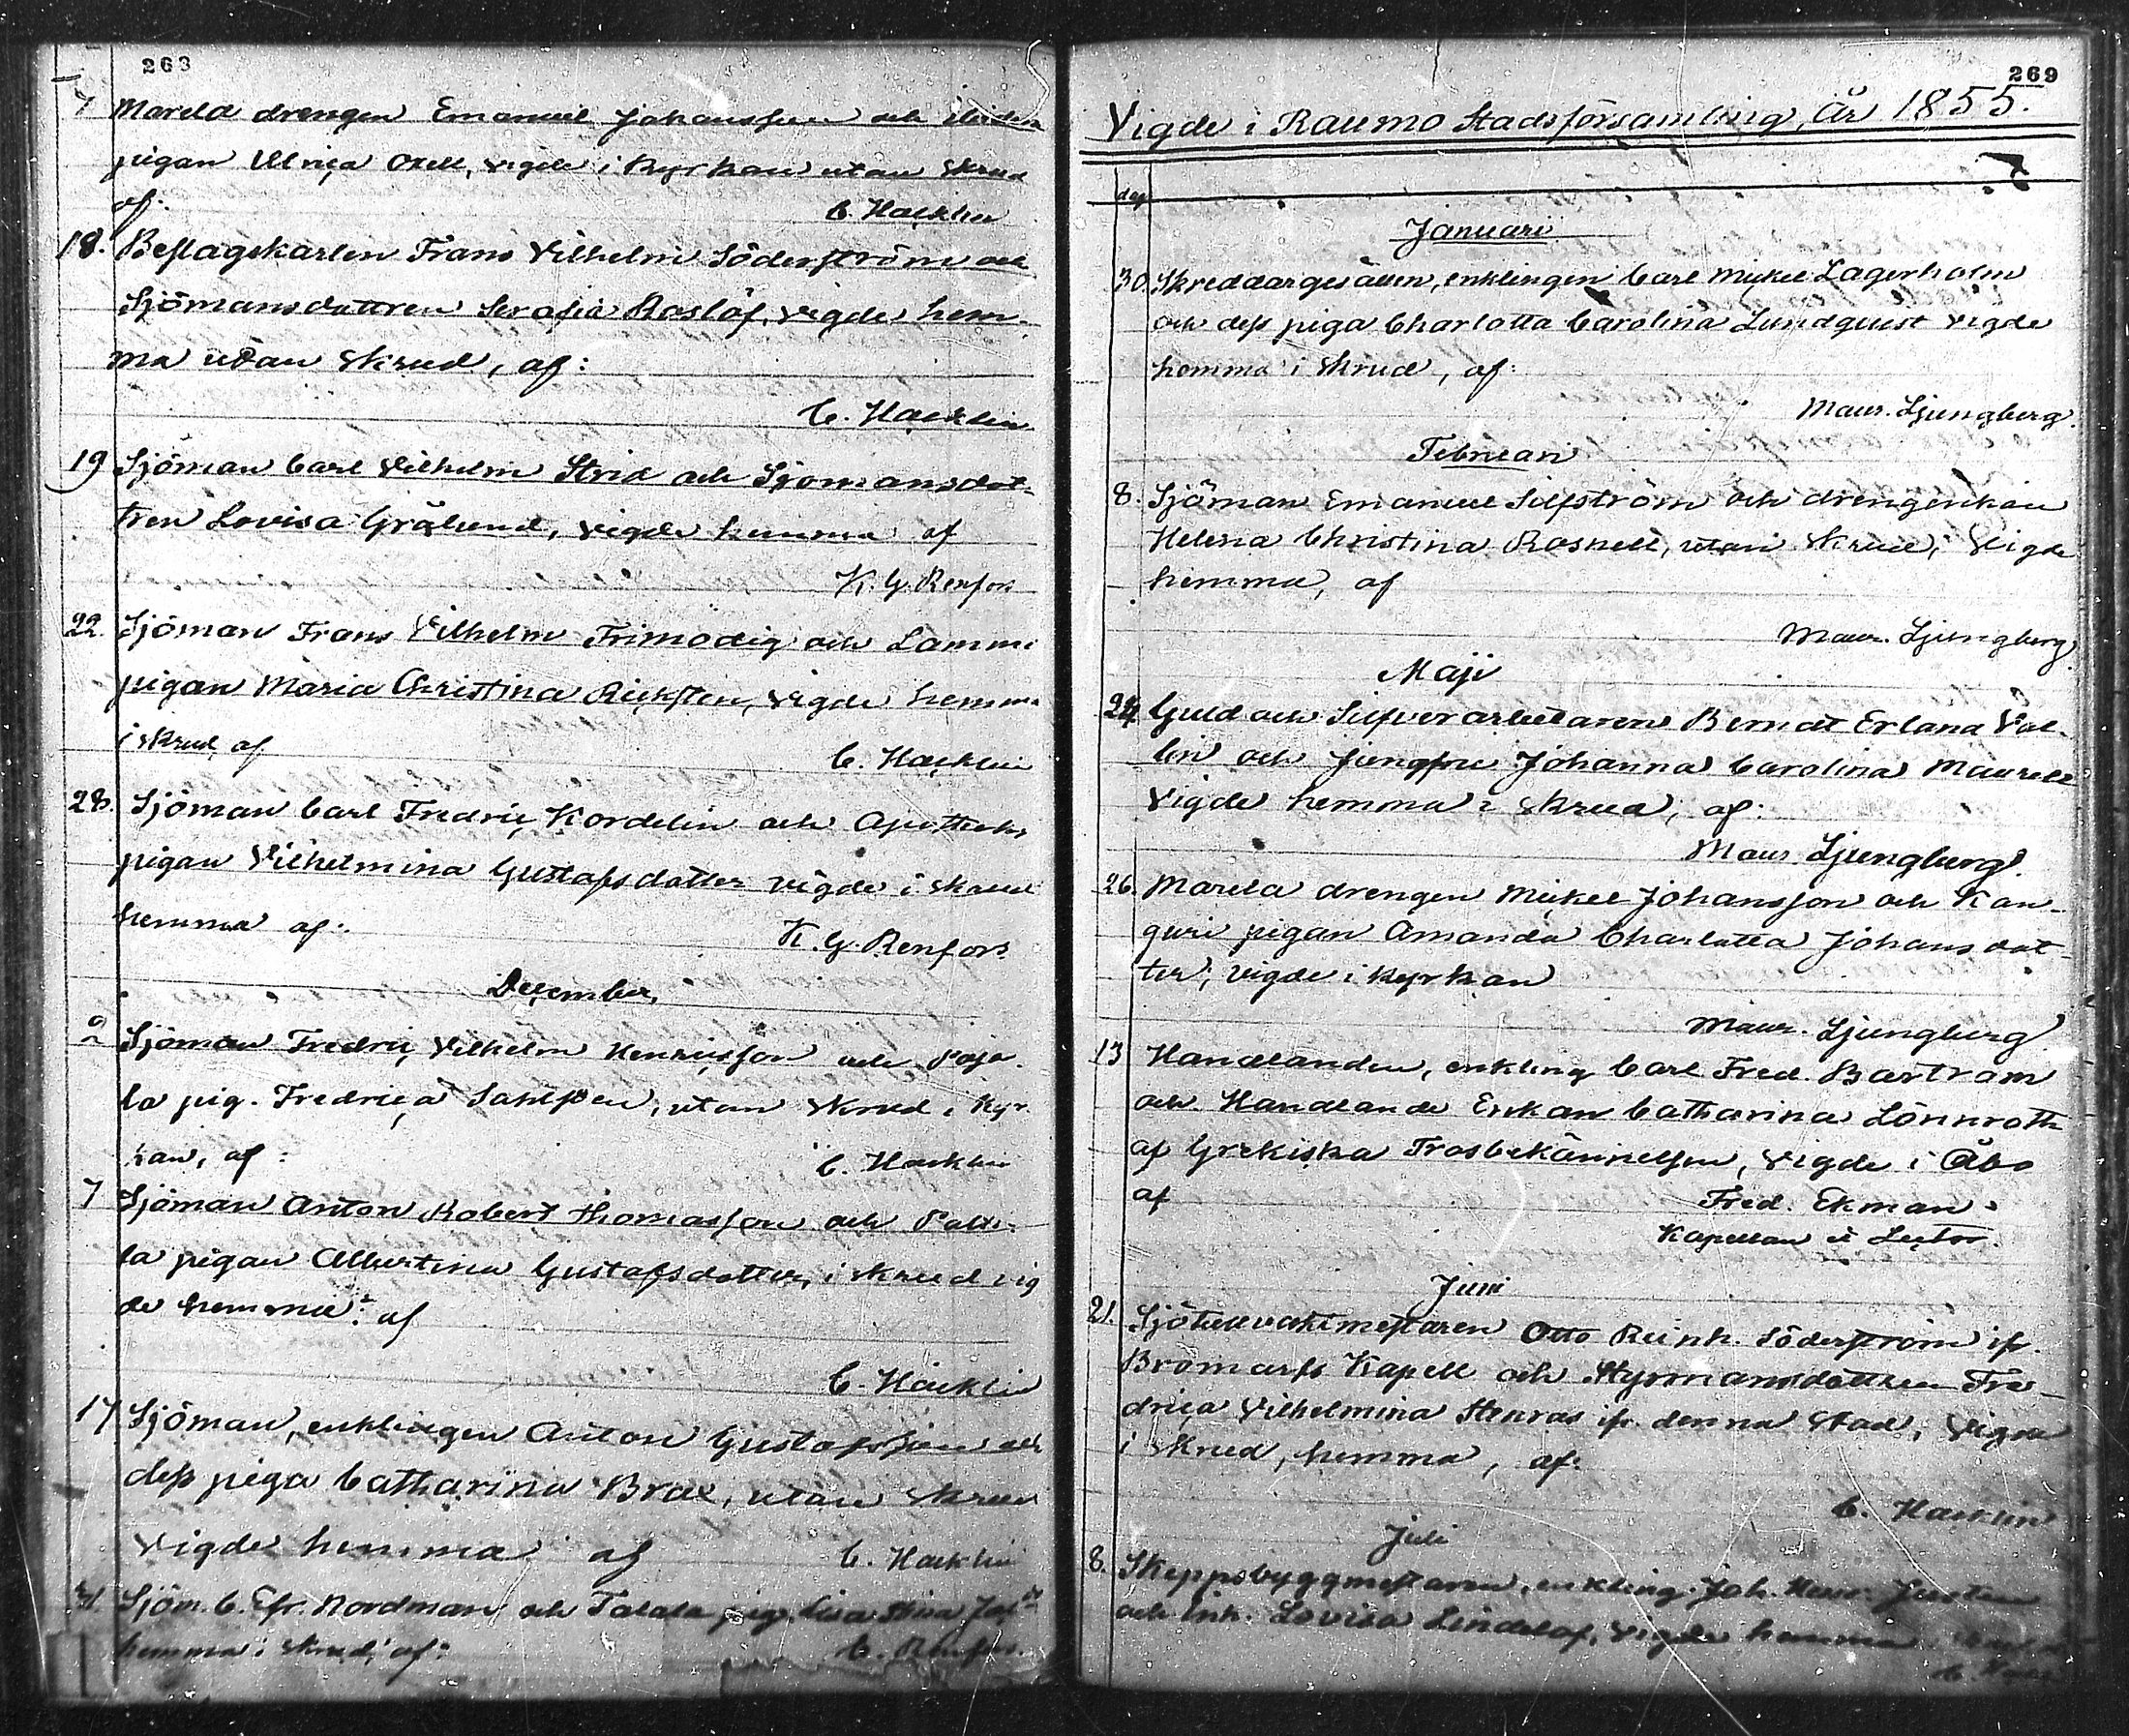 263
7 Marela drengen Emanuel Johansson och
pigan Ulrica Oxell, vigde i Kyrkan utan skrud
af: C. Hacklin
18. Beslagskarlen Frans Vilhelm Söderström och
Sjömansdottren Serafia Roslöf, vigde hem-
ma utan skrud, af:
C. Hacklin
19 Sjöman Carl Vilhelm Strid och Sjömansdot-
tren Lovisa Grälund, vigde hemma af
K. G. Renfors
22. Sjöman Frans Vilhelm Frimodig och Lammi
pigan Maria Christina Rickstén, vigde hemma
i skrud af C. Hacklin
28. Sjöman Carl Fredric Kordelin och Apotheks
pigan Vilhelmina Gustafsdotter vigde i skrud
hemma af: K. G. Renfors
December
2 Sjöman Fredric Vilhelm Henricsson och
la pig. Fredrica Sahlsten, utan skrud i Kyr-
kan, af: C. Hacklin
7 Sjöman Anton Robert Thomasson och
la pigan Albertina Gustafsdotter, i skrud vig
de hemma: af
C. Hacklin
17 Sjöman, enklingen Anton Gustafsson och
dess piga Catharina Brax, utan skrud
vigde hemma af C. Hacklin
31. Sjöm. C. Efr. Nordman och Talala pig. Lisa Stina
hemma i skrud, af: C. Renfors.
269
Vigde i Raumo Stadsförsamling, År 1855.
Januari
30. Skreddargesällen, enklingen Carl Mickel Lagerholm
och dess piga Charlotta Carolina Lundquist vigde
hemma i skrud, af:
Maur. Ljungberg.
Februari
8. Sjöman Emanuel Silfström och drengenkan
Helena Christina Rosnell, utan skrud, vigde
hemma, af
Maur. Ljungberg
Maji
24 Guld och Silfverarbetaren Berndt Erland Val-
lin och Jungfru Johanna Carolina Maurell
vigde hemma i skrud, af:
Maur. Ljungberg.
26. Marela drengen Mickel Johansson och Kan-
guri pigan Amanda Charlotta Johansdot-
ter, vigde i Kyrkan
Maur. Ljungberg
13 Handlanden, enkling Carl Fred. Bartram
och Handlande Enkan Catharina Lönnroth
af Grekiska Trosbekännelsen, vigde i Åbo
af Fred. Ekman
Kapellan i Lector.
Juni
21. Sjötullvaktmestaren Otto Reinh. Söderström ifr.
Bromarfs Kapell och Styrmansdottren Fre-
drica Vilhelmina Stenros ifr. denna stad, vigde
i skrud, hemma, af:
C. Hacklin
Juli
8. Skeppsbyggmestaren, enkling. Joh. Henr. Justén
och Enk. Lovisa Lindelöf, vigde hemma